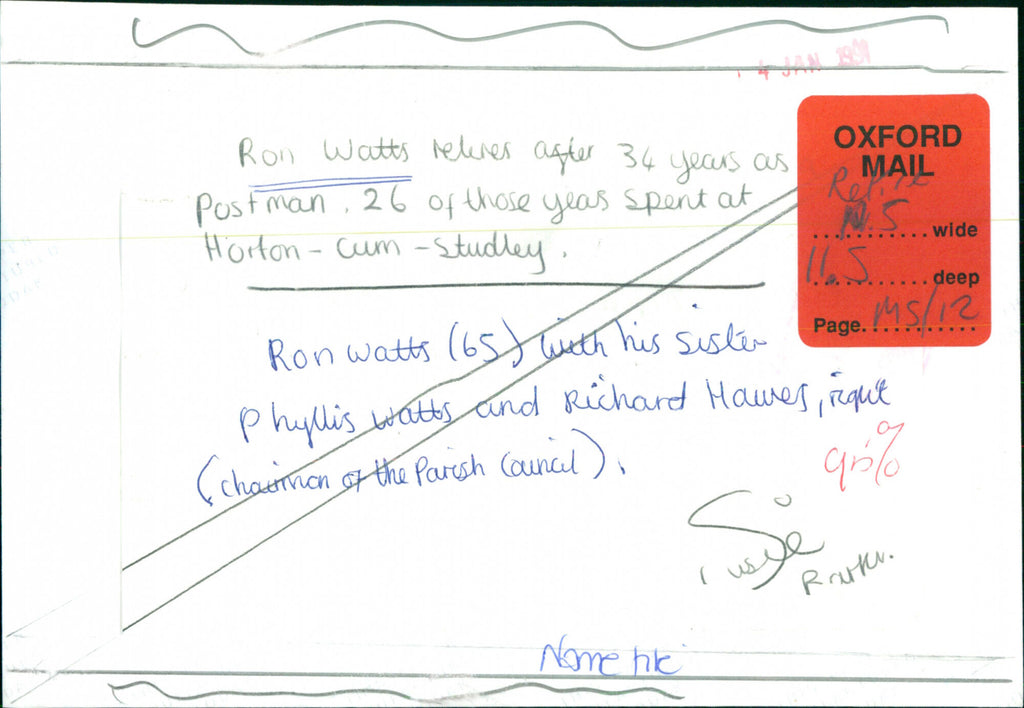 4 JAN
Ron Watts retires after 34 years as
Postman. 26 of those years spent at
Horton-Cum-Studley.
OXFORD
MAIL
Retire
.5 wide
11.5 deep
Page. M5/12
Ron Watts (65) with his sister
Phyllis Watts and Richard Hawes, right
(Chairman of the Parish Council).
%
Name file